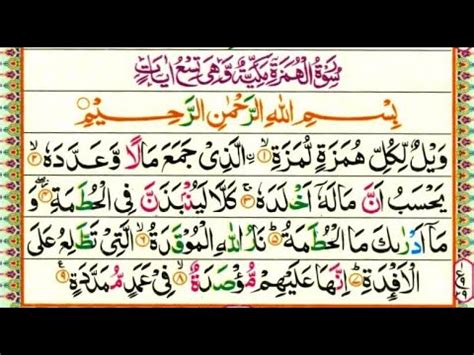 سُوْرَةُ الْهُمَزَةِ مَكِّيَّةٌ وَّهِیَ تِسْعُ اٰیَاتٍ
بِسْمِ اللّٰهِ الرَّحْمٰنِ الرَّحِیْمِ
وَیْلٌ لِّكُلِّ هُمَزَةٍ لُّمَزَةِ ۙ﴿۱﴾ اۨلَّذِیْ جَمَعَ مَالًا وَّعَدَّدَهٗ ۙ﴿۲﴾
یَحْسَبُ اَنَّ مَالَهٗۤ اَخْلَدَهٗ ۚ﴿۳﴾ كَلَّا لَیُنْۢبَذَنَّ فِی الْحُطَمَةِ ۖ﴿۴﴾ وَ
مَاۤ اَدْرٰىكَ مَا الْحُطَمَةُ ؕ﴿۵﴾ نَارُ اللّٰهِ الْمُوْقَدَةُ ۙ﴿۶﴾ الَّتِیْ تَطَّلِعُ عَلَی
الْاَفْـِٕدَةِ ؕ﴿۷﴾ اِنَّهَا عَلَیْهِمْ مُّؤْصَدَةٌ ۙ﴿۸﴾ فِیْ عَمَدٍ مُّمَدَّدَةٍ ﴿۹﴾